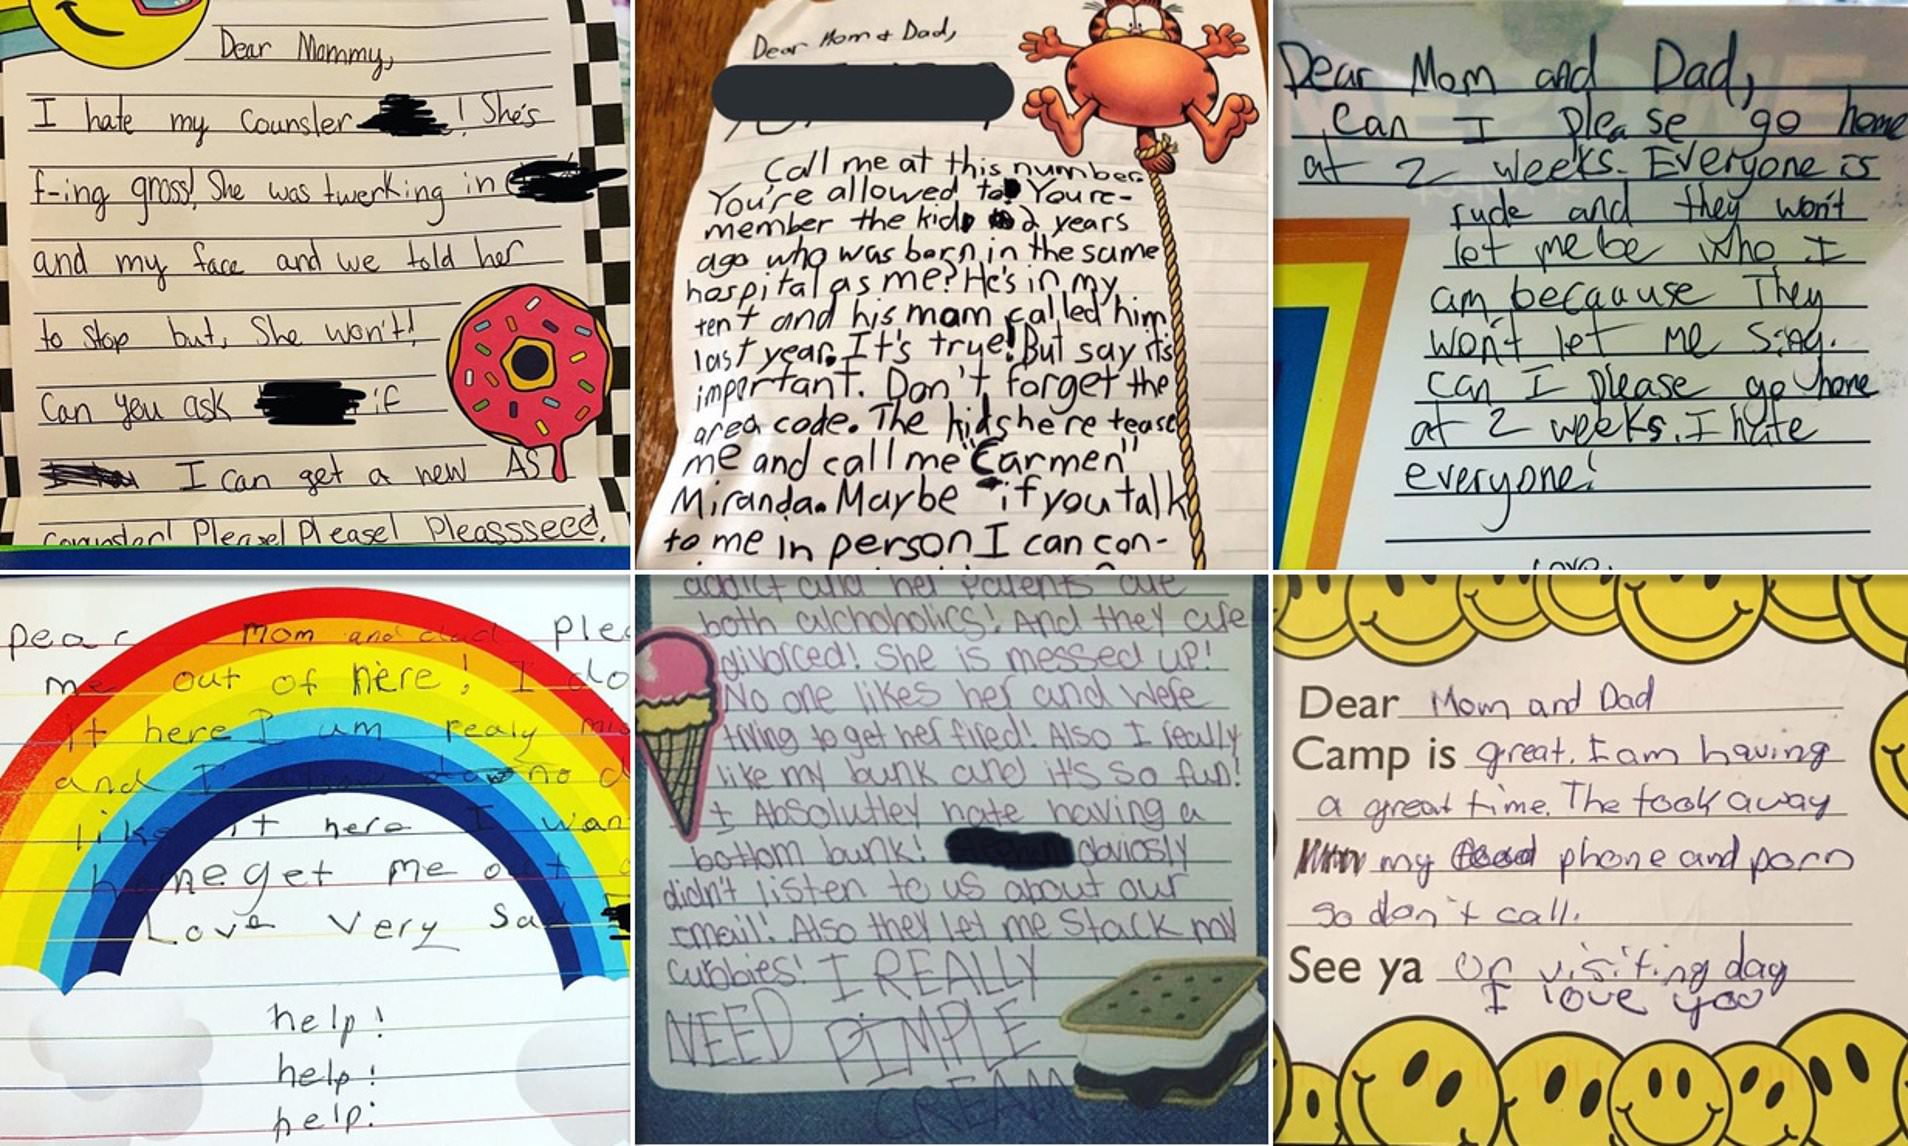 Dear Mommy,
I hate my Counsler ! She's
f-ing gross! She was twerking in
and my face and we told her
to stop but, She won't!
Can you ask if
I can get a new AS
Pleasssseee,
Dear Mom & Dad,
Call me at this number.
You're allowed to! You re-
member the kid 2 years
ago who was born in the same
hospital as me? He's in my
tent and his mom called him
last year. It's true! But say it's
important. Don't forget the
area code. The kids here tease
me and call me "Carmen"
Miranda. Maybe if you talk
to me in person I can con-
Dear Mom and Dad,
Can I please go home
at 2 weeks. Everyone is
rude and they won't
let me be who I
am becauuse They
won't let me sing.
can I please go home
at 2 weeks. I hate
everyone!
Love,
Dear Mom and dad ple
me out of here! I do
it here I um realy mis
and I no d
like it here I wan
home get me out
Love Very Sad
help!
help!
help!
addict and her parents are
both alchoholics! And they are
divorced! She is messed up!
No one likes her and were
trying to get her fired! Also I really
like my bunk and it's so fun!
I Absolutley hate having a
bottom bunk! obviosly
didn't listen to us about our
email! Also they let me Stack my
cubbies! I REALLY
NEED PIMPLE
CREAM
Dear Mom and Dad
Camp is great. I am having
a great time. The took away
my phone and porn
so don't call.
See ya on visiting day
I love you